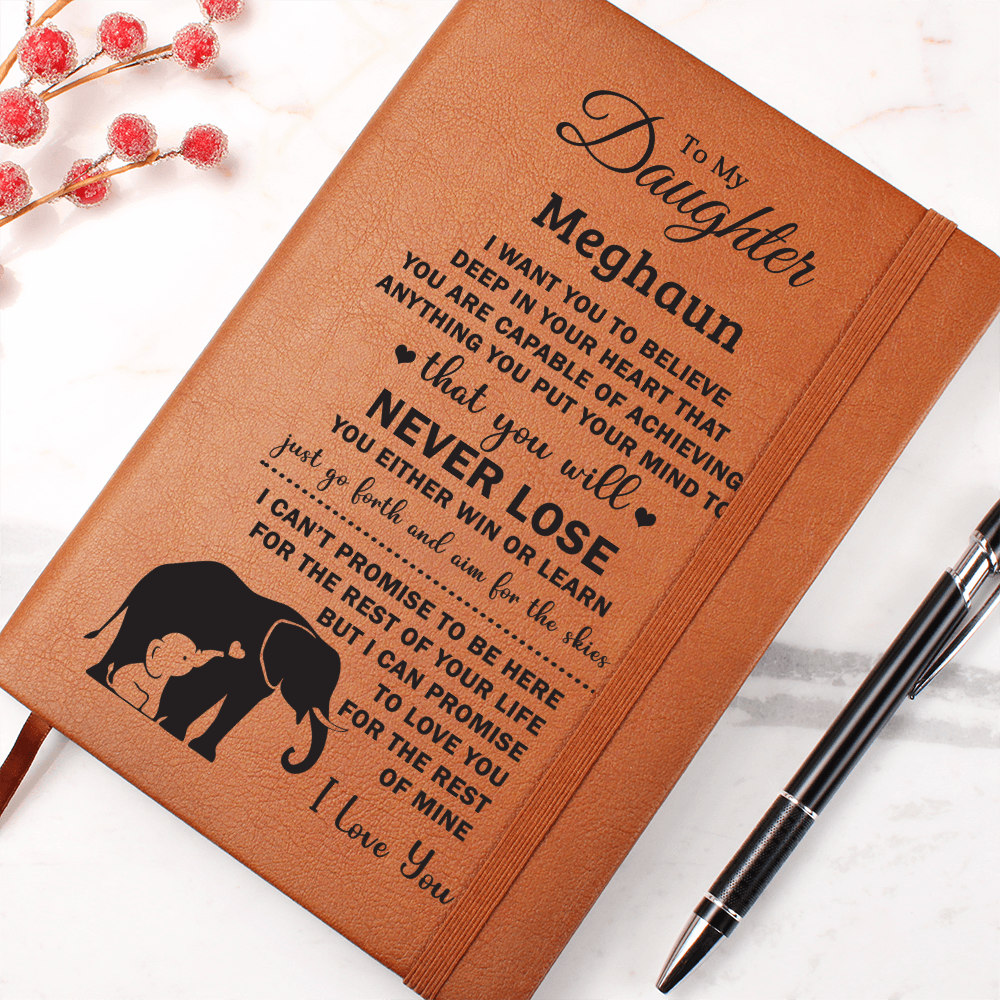 To My
Daughter
Meghaun
I WANT YOU TO BELIEVE
DEEP IN YOUR HEART THAT
YOU ARE CAPABLE OF ACHIEVING
ANYTHING YOU PUT YOUR MIND TO
that you will
NEVER LOSE
YOU EITHER WIN OR LEARN
just go forth and aim for the skies
I CAN'T PROMISE TO BE HERE
FOR THE REST OF YOUR LIFE
BUT I CAN PROMISE
TO LOVE YOU
FOR THE REST
OF MINE
I Love You